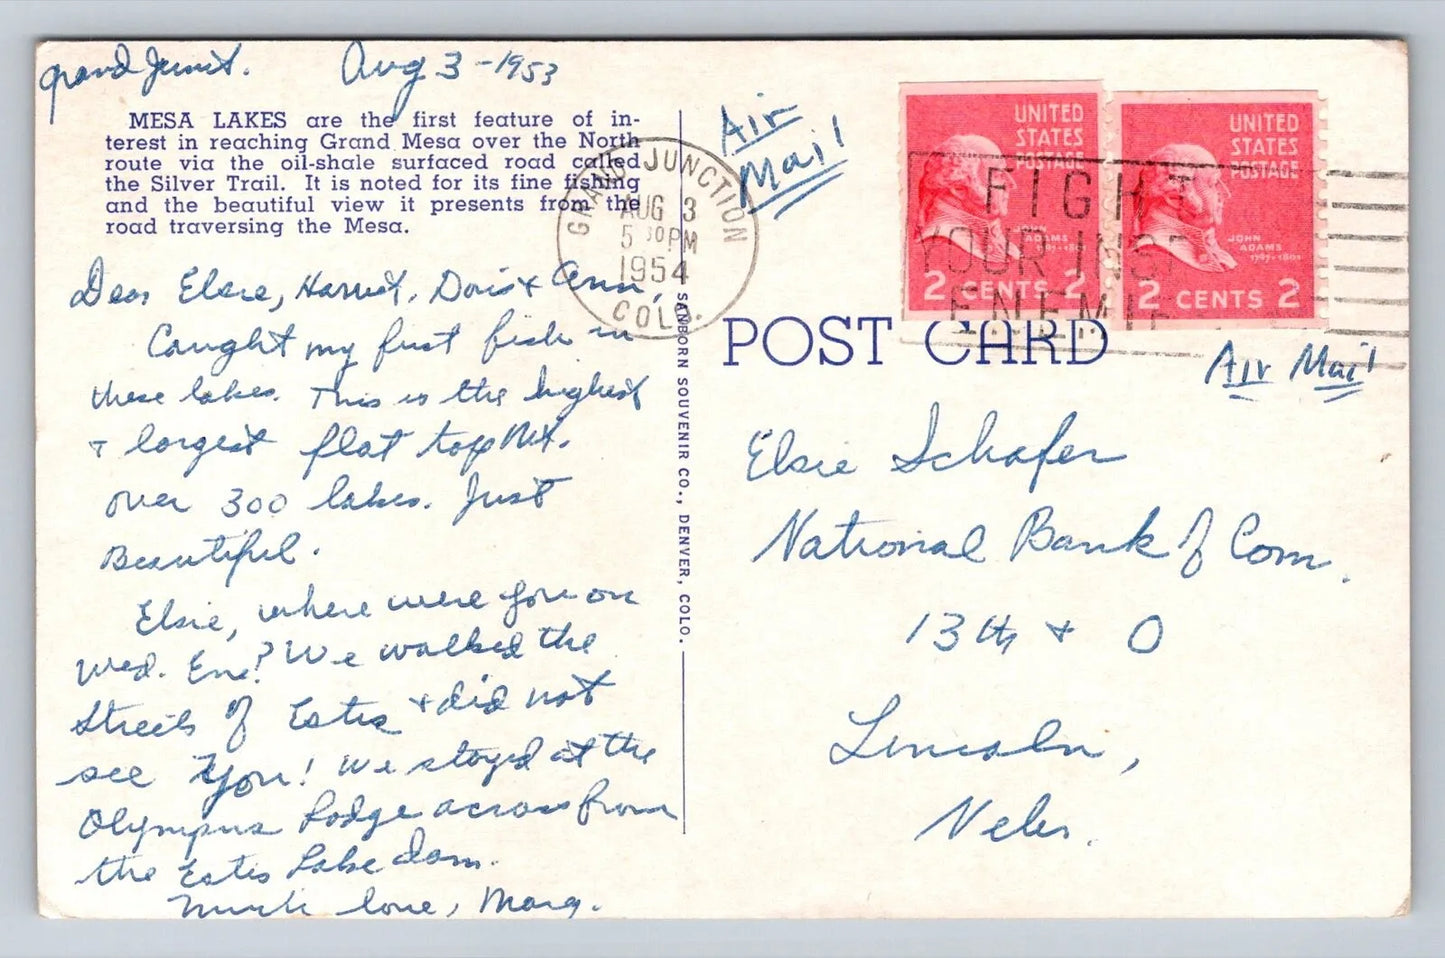 Grand Junct. Aug 3 - 1953
MESA LAKES are the first feature of in-
terest in reaching Grand Mesa over the North
route via the oil-shale surfaced road called
the Silver Trail. It is noted for its fine fishing
and the beautiful view it presents from the
road traversing the Mesa.
Dear Elsie, Harriet, Doris & Ann,
Caught my first fish in
these lakes. This is the highest
& largest flat top Mt.
over 300 lakes. Just
Beautiful.
Elsie, where were you on
Wed. Eve? We walked the
Streets of Estes & did not
see you! We stayed at the
Olympus Lodge across from
the Estes Lake dam.
Much love, Marg.
SANBORN SOUVENIR CO., DENVER, COLO.
GRAND JUNCTION
AUG 3
5 30 PM
1954
COLO.
Air
Mail
UNITED
STATES
POSTAGE
JOHN
ADAMS
1797-1801
2 CENTS 2
UNITED
STATES
POSTAGE
JOHN
ADAMS
1797-1801
2 CENTS 2
FIGHT
YOUR INS
ENEMIE
POST CARD
Air Mail
Elsie Schafer
National Bank of Com.
13th & O
Lincoln,
Nebr.